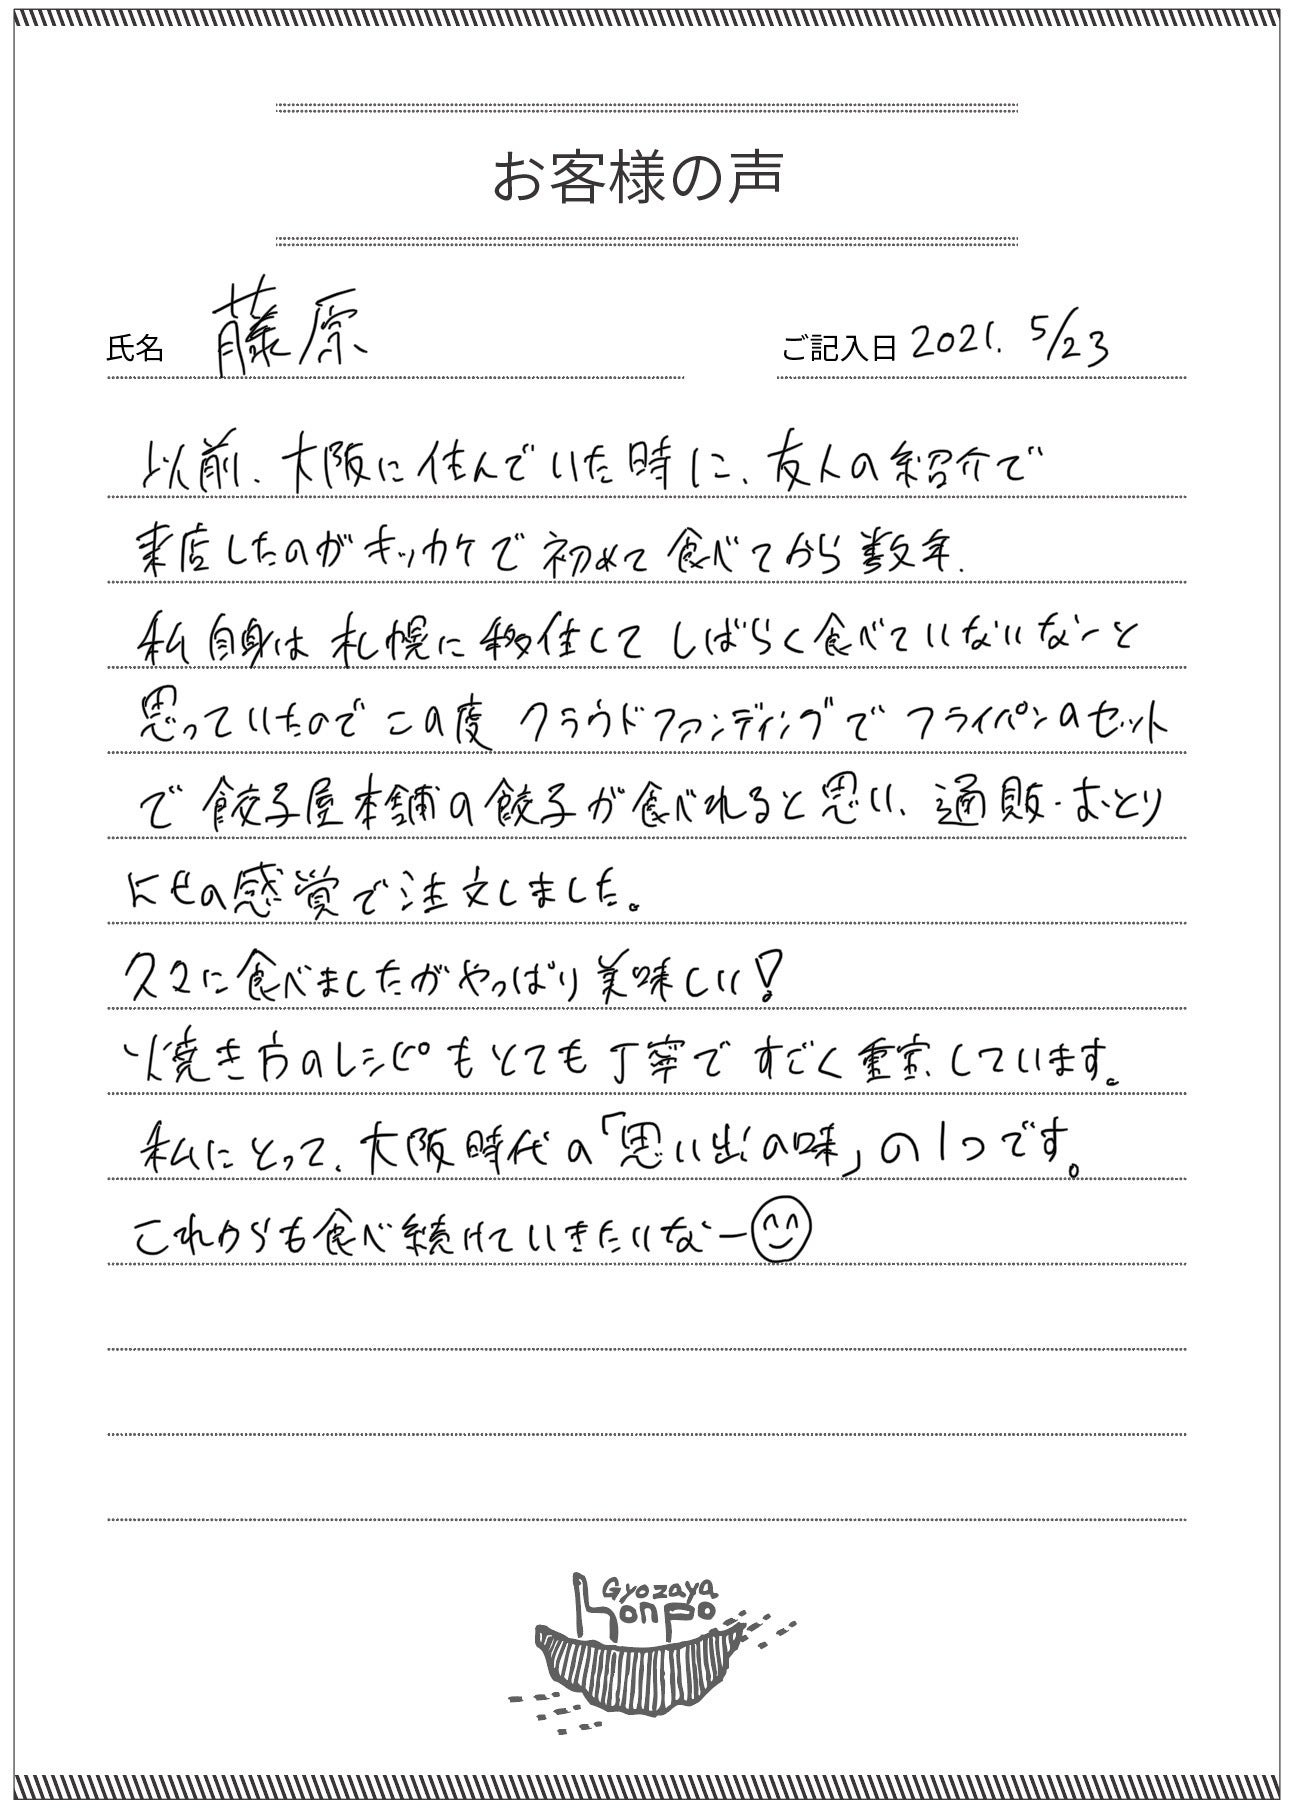 お客様の声
氏名 藤原 ご記入日 2021. 5/23
以前、大阪に住んでいた時に、友人の紹介で
来店したのがキッカケで初めて食べてから数年、
私自身は札幌に移住してしばらく食べていないなーと
思っていたのでこの度クラウドファンディングでフライパンのセット
で餃子屋本舗の餃子が食べれると思い、通販・おとり
よせの感覚で注文しました。
久々に食べましたがやっぱり美味しい!
焼き方のレシピもとても丁寧ですごく重宝しています。
私にとって、大阪時代の「思い出の味」の1つです。
これからも食べ続けていきたいなー
Gyozaya
honpo